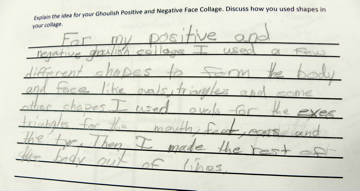 Explain the idea for your Ghoulish Positive and Negative Face Collage. Discuss how you used shapes in
your collage.
For my positive and
negative ghoulish collage I used a few
different shapes to form the body
and face like ovals, triangles and some
other shapes I used ovals for the eyes
triangles for the mouth, feet, and
the Then I made the rest of
the body out of lines.